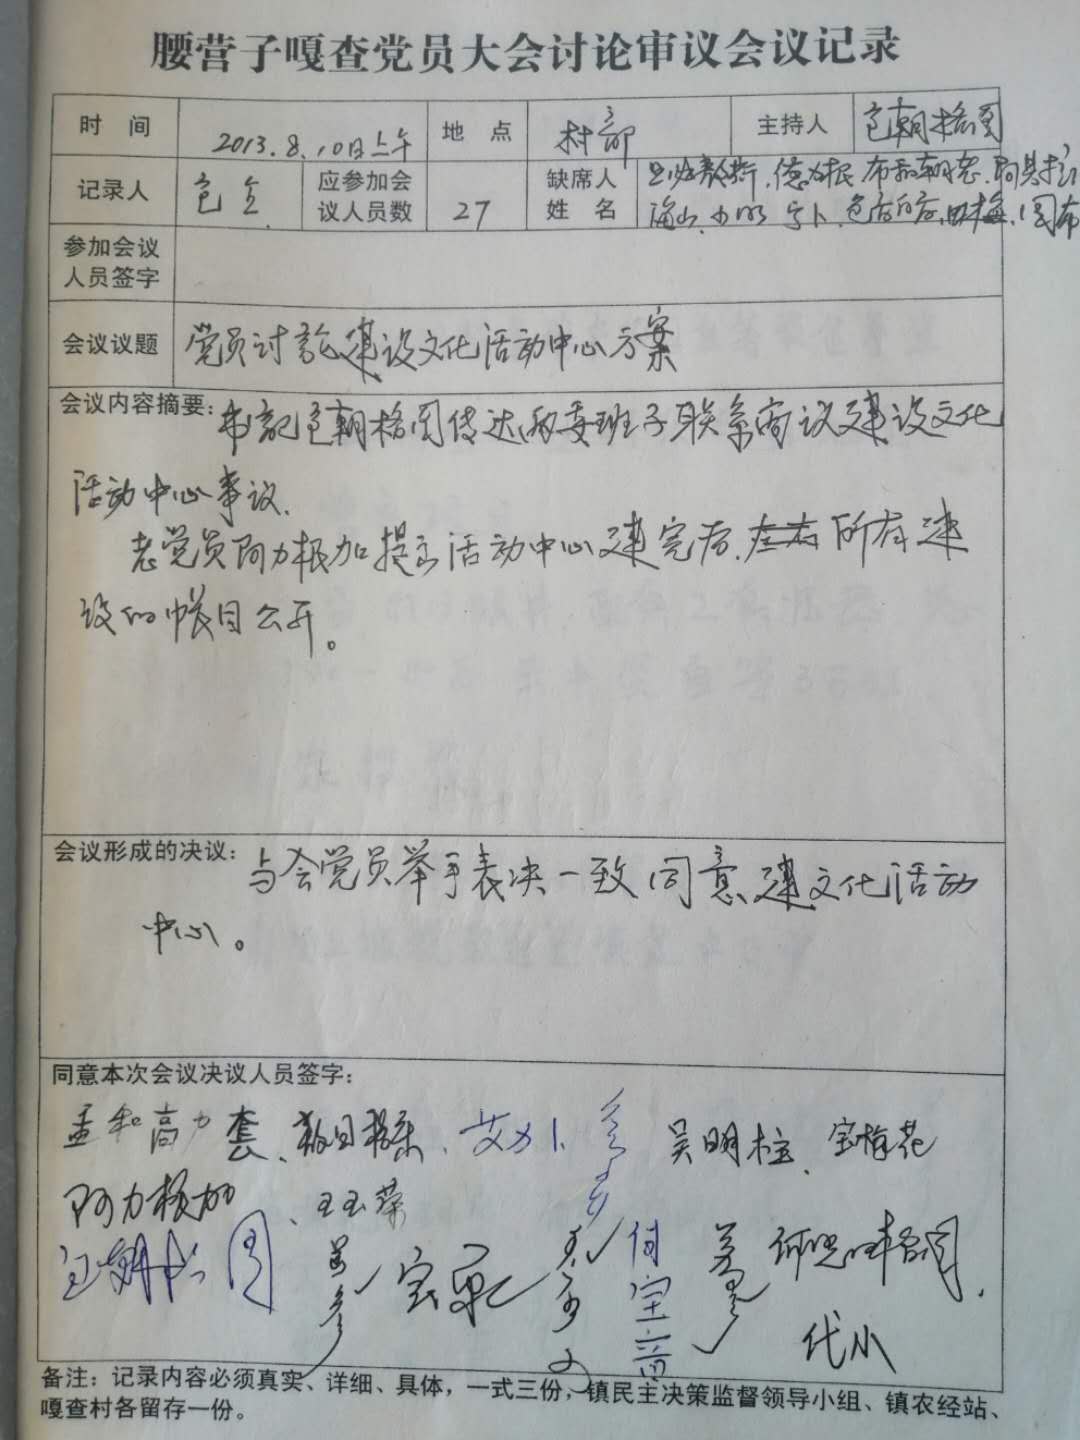 腰营子嘎查党员大会讨论审议会议记录
时 间 2013.8.10日上午 地 点 村部 主持人 包朝格图
记录人 包 应参加会 缺席人
议人员数 27 姓 名
参加会议
人员签字
会议议题 党员讨论建设文化活动中心方案
会议内容摘要: 书记包朝格图传达两委班子联系商议建设文化
活动中心事议.
老党员阿力根加提示活动中心建完后. 所有建
设的帐目公开。
会议形成的决议: 与会党员举手表决一致同意建文化活动
中心。
同意本次会议决议人员签字:
孟和高力套、 艾力卜 吴明柱、宝梅花
阿力根加、王玉荣
包朝格图 付宝音
代小
备注: 记录内容必须真实、详细、具体, 一式三份, 镇民主决策监督领导小组、镇农经站、
嘎查村各留存一份。